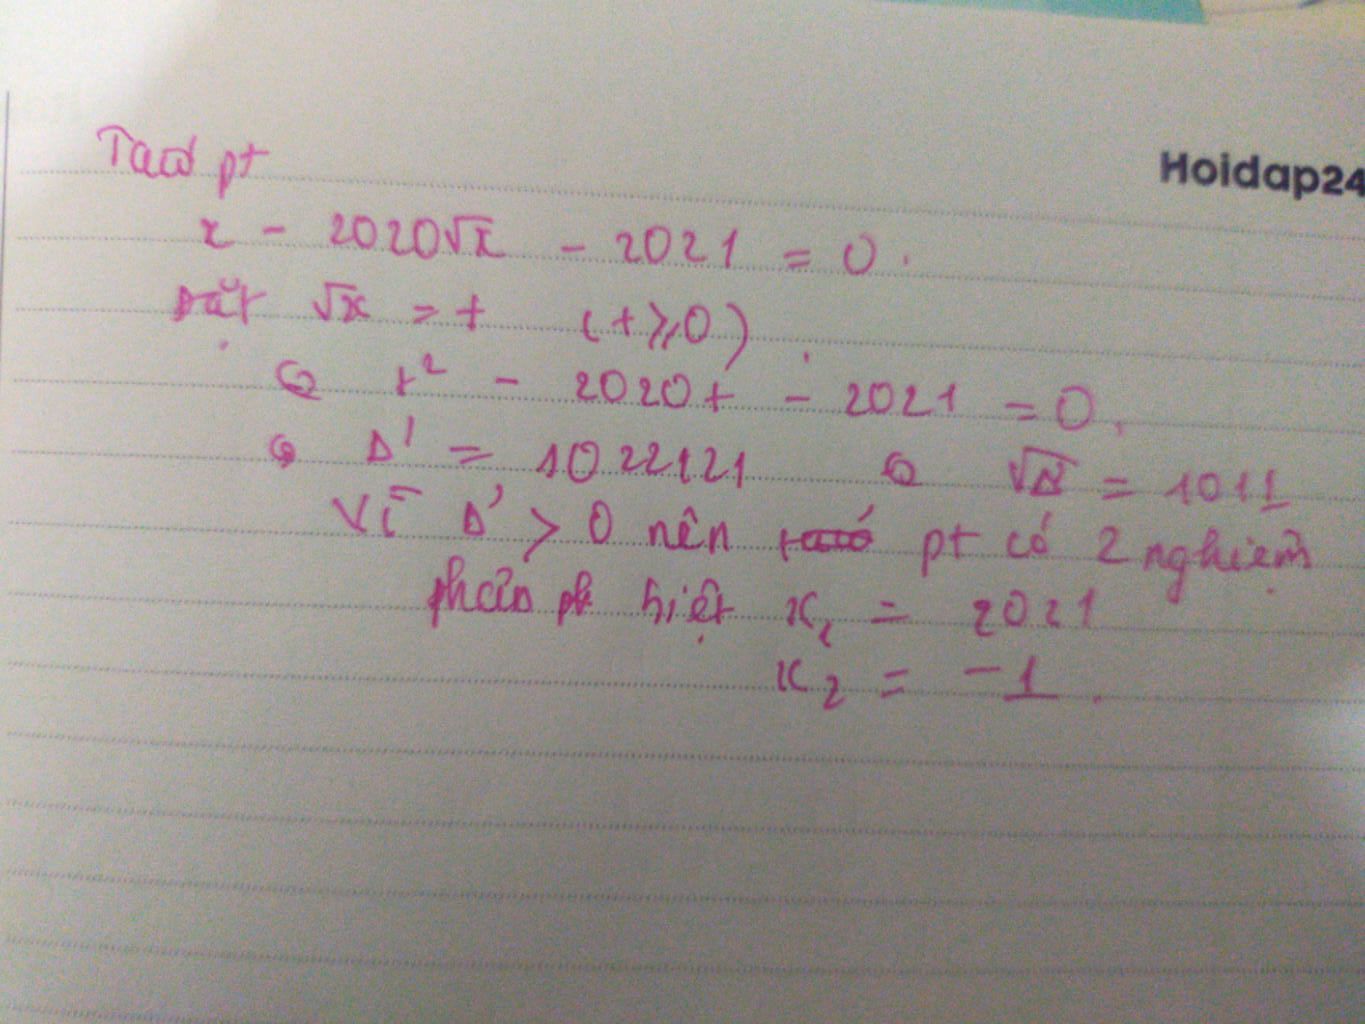 Ta có pt
Hoidap24
x - 2020√x - 2021 = 0.
Đặt √x = t (t ≥ 0)
⇔ t² - 2020t - 2021 = 0.
⇔ Δ' = 1022121 ⇔ √Δ' = 1011
Vì Δ' > 0 nên pt có 2 nghiệm
phân biệt x₁ = 2021
x₂ = -1.